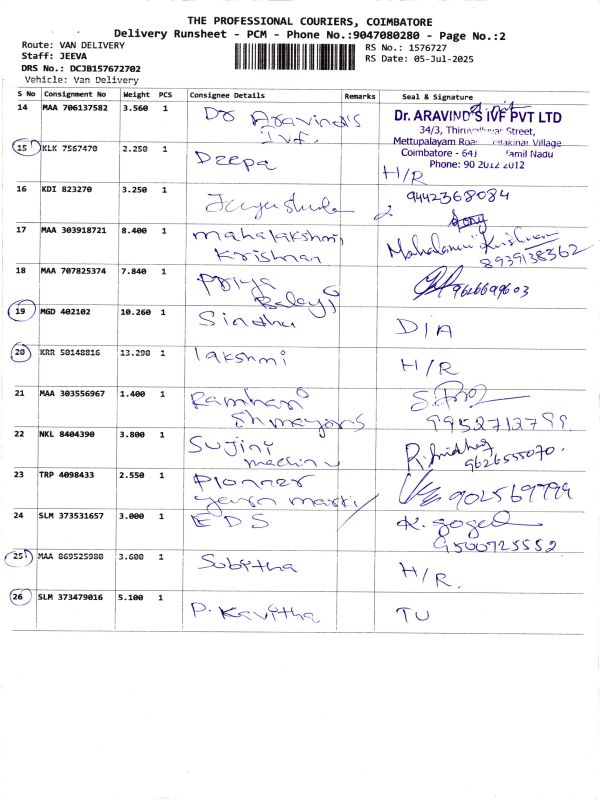 THE PROFESSIONAL COURIERS, COIMBATORE
Delivery Runsheet - PCM - Phone No.:9047080280 - Page No.:2
Route: VAN DELIVERY
Staff: JEEVA
DRS No.: DCJB157672702
Vehicle: Van Delivery
RS No.: 1576727
RS Date: 05-Jul-2025
S No Consignment No Weight PCS Consignee Details Remarks Seal & Signature
14 MAA 706137582 3.560 1 Dr Aravind's Ivf. Dr. ARAVIND'S IVF PVT LTD
34/3, Street,
Mettupalayam Village
Coimbatore - 641 Tamil Nadu
Phone: 90 2012 2012
15 KLK 7567470 2.250 1 Deepa H/R
16 KDI 823270 3.250 1 9442368084
17 MAA 303918721 8.400 1 mahalakshmi, Krishnan 8939138362
18 MAA 707825374 7.840 1 Priya Balaji
19 MGD 402102 10.260 1 Sindhu D/A
20 KRR 50148816 13.290 1 lakshmi H/R
21 MAA 303556967 1.400 1 9952712799
22 NKL 8404390 3.800 1 Sujini 9626555070.
23 TRP 4098433 2.550 1 Pionner 902569799
24 SLM 373531657 3.000 1 EDS 9500725552
25 MAA 869525980 3.600 1 Subitha H/R.
26 SLM 373479016 5.100 1 P. Kavitha TU